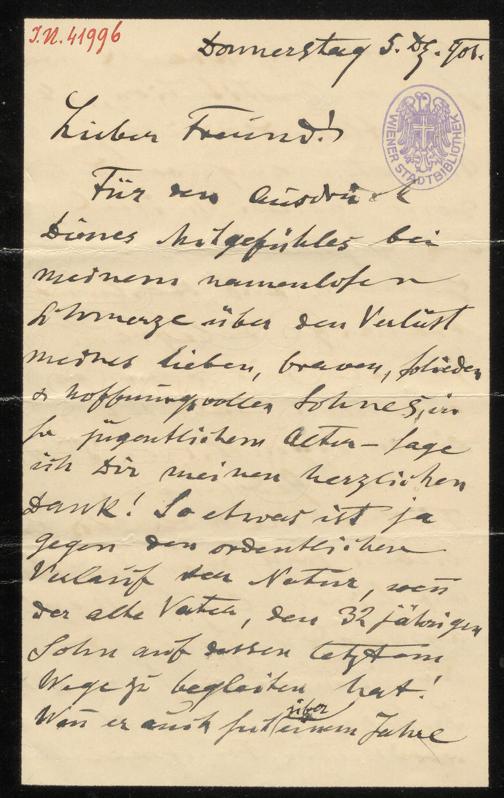 J.N. 41996
Donnerstag 5. Dz. 901.
WIENER STADTBIBLIOTHEK
Lieber Freund!
Für den Ausdruck
Deines Mitgefühles bei
meinem namenlosen
Schmerze über den Verlust
meines lieben, braven, soliden
& hoffnungsvollen Sohnes, in
so jugentlichem Alter – sage
ich Dir meinen herzlichen
Dank! So etwas ist ja
gegen den ordentlichen
Verlauf der Natur, wen̄
der alte Vater, den 32 jährigen
Sohn auf dessen letztem
Wege zu begleiten hat!
Wen̄ er auch seit über einem Jahre